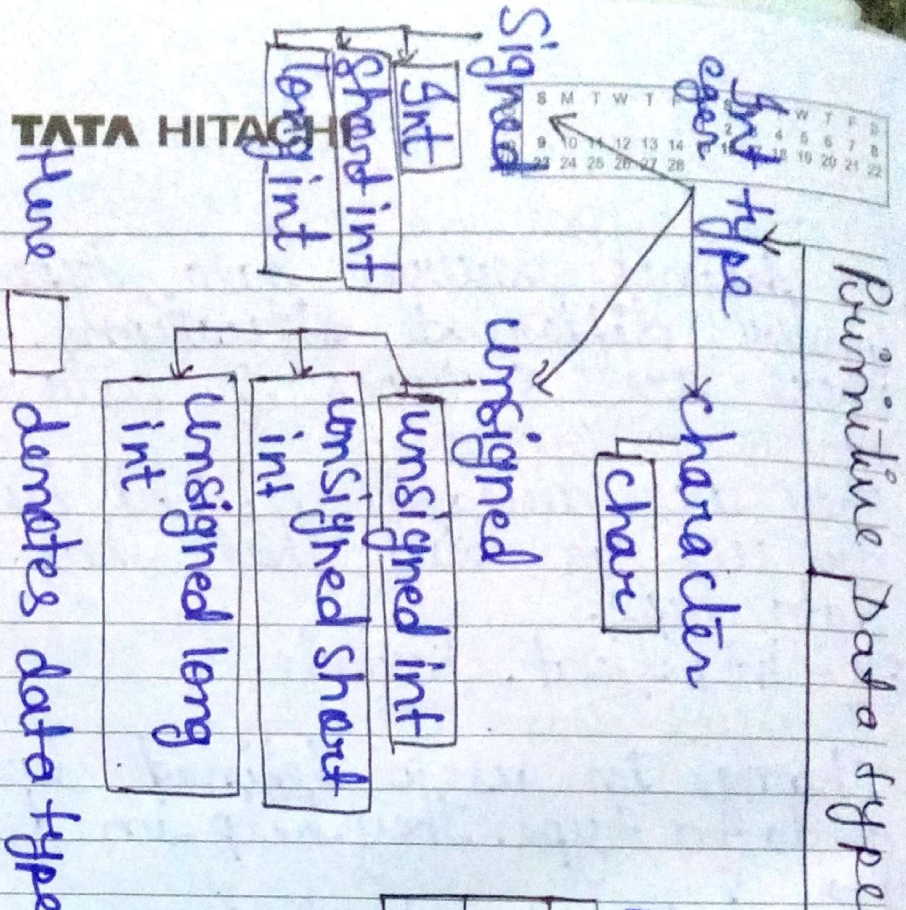 Primitive Data type
Int
eger type
character
char
Signed
Int
Short int
long int
unsigned
unsigned int
unsigned short
int
unsigned long
int
Here denotes data type
TATA HITACHI
S M T W T
9 10 11 12 13 14
23 24 25 26 27 28
W T F S